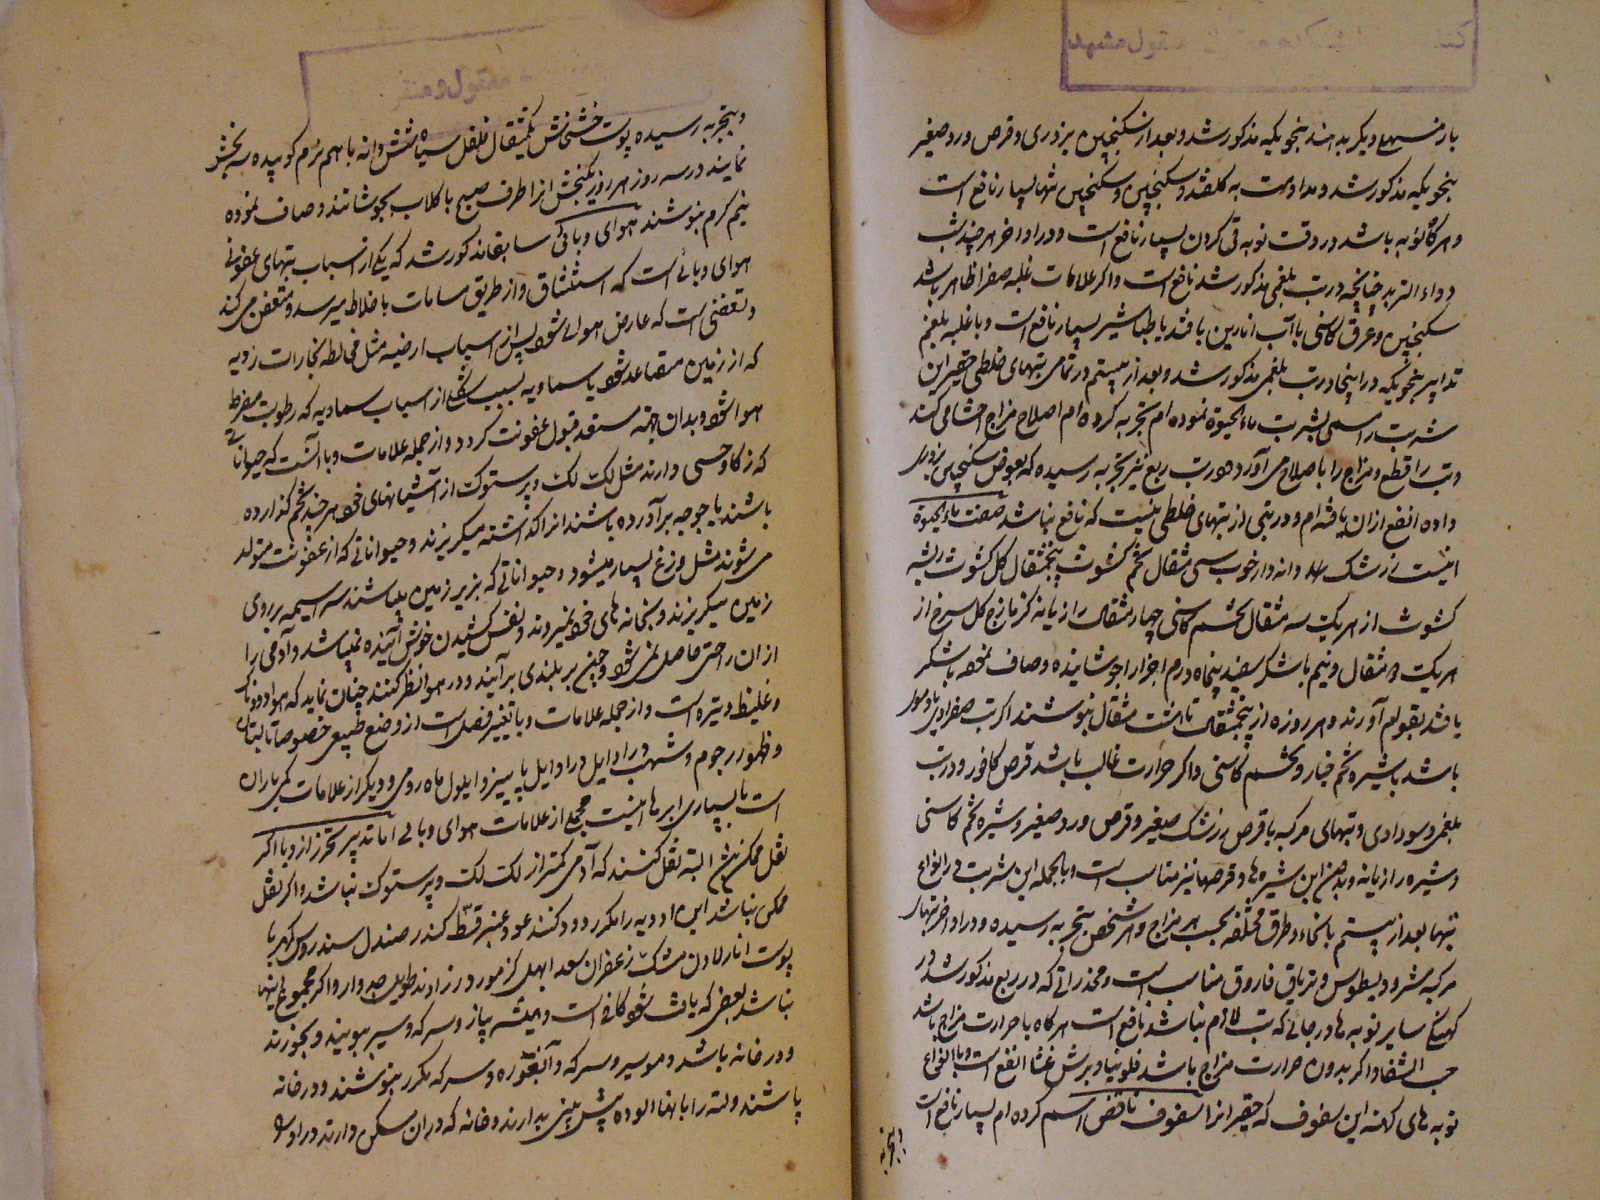 باز مسهل دیگر بدهند بنحویکه مذکور شد و بعد از سکنجبین بزوری و قرص ورد صغیر
بنحویکه مذکور شد و مداومت به گلقند و سکنجبین و سکنجبین تنها بسیار نافع است
و هرگاه نوبه باشد در وقت نوبه قی کردن بسیار نافع است و در اواخر هر چند شب
دواء التربد چنانچه در تب بلغمی مذکور شد نافع است و اگر علامات غلبه صفرا ظاهر باشد
سکنجبین و عرق کاسنی با آب انارین یا قند یا طباشیر بسیار نافع است و با غلبه بلغم
تدابیر بنحویکه در اینجا در تب بلغمی مذکور شد و بعد از بیستم در تمامی تبهای خلطی حقیر این
شربت را مسمی بشربت ماء الحیوة نموده ام تجربه کرده ام اصلاح مزاج احشا می کند
و تب را قطع و مزاج را باصلاح می آورد و در تب ربع نیز بتجربه رسیده که بعوض سکنجبین بزوری
داده انفع از ان یافته ام و در تبی از تبهای خلطی نیست که نافع نباشد صفت ماء الحیوة
اینست زرشک دانه دار خوب سی مثقال تخم کشوث پنجمثقال گل کشوث ریشه
کشوث از هر یک سه مثقال تخم کاسنی چهار مثقال رازیانه گزمازج گل سرخ از
هر یک دو مثقال و نیم با شکر سفید پنجاه درم اجزا را جوشانیده و صاف نموده با شکر
یا قند بقوام آورند و هر روزه از پنجمثقال تا هشت مثقال بنوشند اگر تب صفراوی یا دموی
باشد با شیره تخم خیار و تخم کاسنی و اگر حرارت غالب باشد قرص کافور و در تب
بلغمی و سوداوی و تبهای مرکبه با قرص زرشک صغیر و قرص ورد صغیر و شیره تخم کاسنی
و شیره رازیانه و بدون این شیره ها و قرصها نیز مناسب است و بالجمله این شربت در انواع
تبها بعد از بیستم بانحاء و طرق مختلفه بحسب هر مزاج و هر شخص بتجربه رسیده و در اواخر تبهای
مرکبه مثرودیطوس و تریاق فاروق مناسب است و مخدراتی که در ربع مذکور شد در
کهنگی سایر نوبه ها در جائی که تب لازم نباشد نافع است هرگاه با حرارت مزاج باشد
حب الشفا و اگر بدون حرارت مزاج باشد فلونیا و برشعثا انفع است و با انواع
نوبه های کهنه این سفوف که حقیر انرا سفوف ناقض اسم کرده ام بسیار نافع است
و بتجربه
و بتجربه رسیده پوست خشخاش یکمثقال فلفل سیاه شش دانه با هم نرم کوبیده سه بخش
نمایند در سه روز هر روز یکبخش انرا طرف صبح با گلاب بجوشانند و صاف نموده
نیم گرم بنوشند هوای وبائی سابقا مذکور شد که یکی از اسباب تبهای عفونی
هوای وبائی است که استنشاق و از طریق مسامات باخلاط میرسد و متعفن می کند
و تعفنی است که عارض هوا می شود پس از اسباب ارضیه مثل مخالطه بخارات ردیه
که از زمین متصاعد شود یا سماویه بسبب شکلی از اسباب سماویه که رطوبت مفرط
هوا شود و بدان جهة مستعد قبول عفونت گردد و از جمله علامات وبا آنست که حیواناتی
که ذکاوت حسی دارند مثل لک لک و پرستوک از آشیانهای خود هر چند تخم گذارده
باشند یا جوجه برآورده باشند انرا گذاشته میگریزند و حیواناتی که از عفونت متولد
می شوند مثل وزغ بسیار میشود و حیواناتی که بزیر زمین میباشند سراسیمه بر روی
زمین میگریزند و بخانه های خود نمیروند و نفس کشیدن خوش آینده نمیباشد و آدمی را
از ان راحتی حاصل نمی شود و چون بر بلندی برآیند و در هوا نظر کنند چنان نماید که هوا دودناک
و غلیظ و تیره است و از جمله علامات وبا تغییر فصل است از وضع طبیعی خصوصا تابستان
و ظهور رجوم و شهب در اوایل پاییز و ایلول ماه رومی و دیگر از علامات کمی باران
است با بسیاری ابرها اینست مجملی از علامات هوای وبائی اما تدبیر تحرز از وبا اگر
نقل ممکن باشد البته نقل کنند که آدمی کمتر از لک لک و پرستوک نباشد و اگر نقل
ممکن نباشد این ادویه را مکرر دود کنند عود عنبر قسط کندر صندل سندروس کهربا
پوست انار لادن مشک زعفران سعد ابهل گزمورد زراوند طویل جدوار و اگر مجموع اینها
نباشد بعضی که یافت شود کافی است و همیشه پیاز و سرکه و سیر ببویند و بخورند
و در خانه باشد و موسیر و سرکه و آبغوره و سرکه مکرر بنوشند و در خانه
پاشند و لته را بانها آلوده پیش بینی بدارند و خانه که در ان سکنی دارند در او